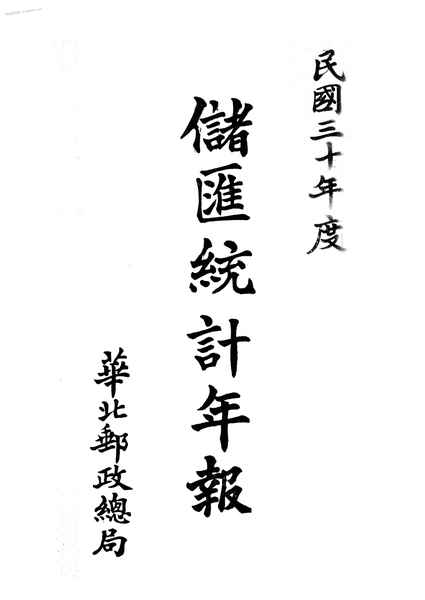 民國三十年度
儲匯統計年報
華北郵政總局